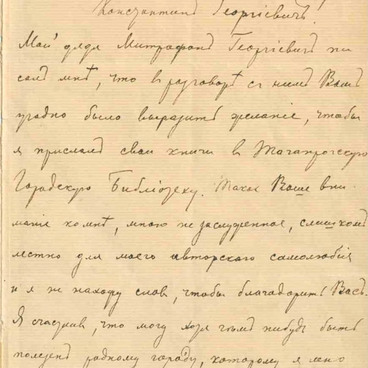 Константинъ Георгіевичъ!
Мой дядя Митрофанъ Георгіевичъ пи
салъ мнѣ, что въ разговорѣ съ нимъ Вамъ
угодно было выразить желаніе, чтобы
я прислалъ свои книги въ Таганрогскую
Городскую Библіотеку. Такое Ваше вни-
маніе ко мнѣ, мною не заслуженное, слишкомъ
лестно для моего авторскаго самолюбія
и я не нахожу словъ, чтобы благодарить Васъ.
Я счастливъ, что могу хотя чѣмъ нибудь быть
полезенъ родному городу, которому я мно